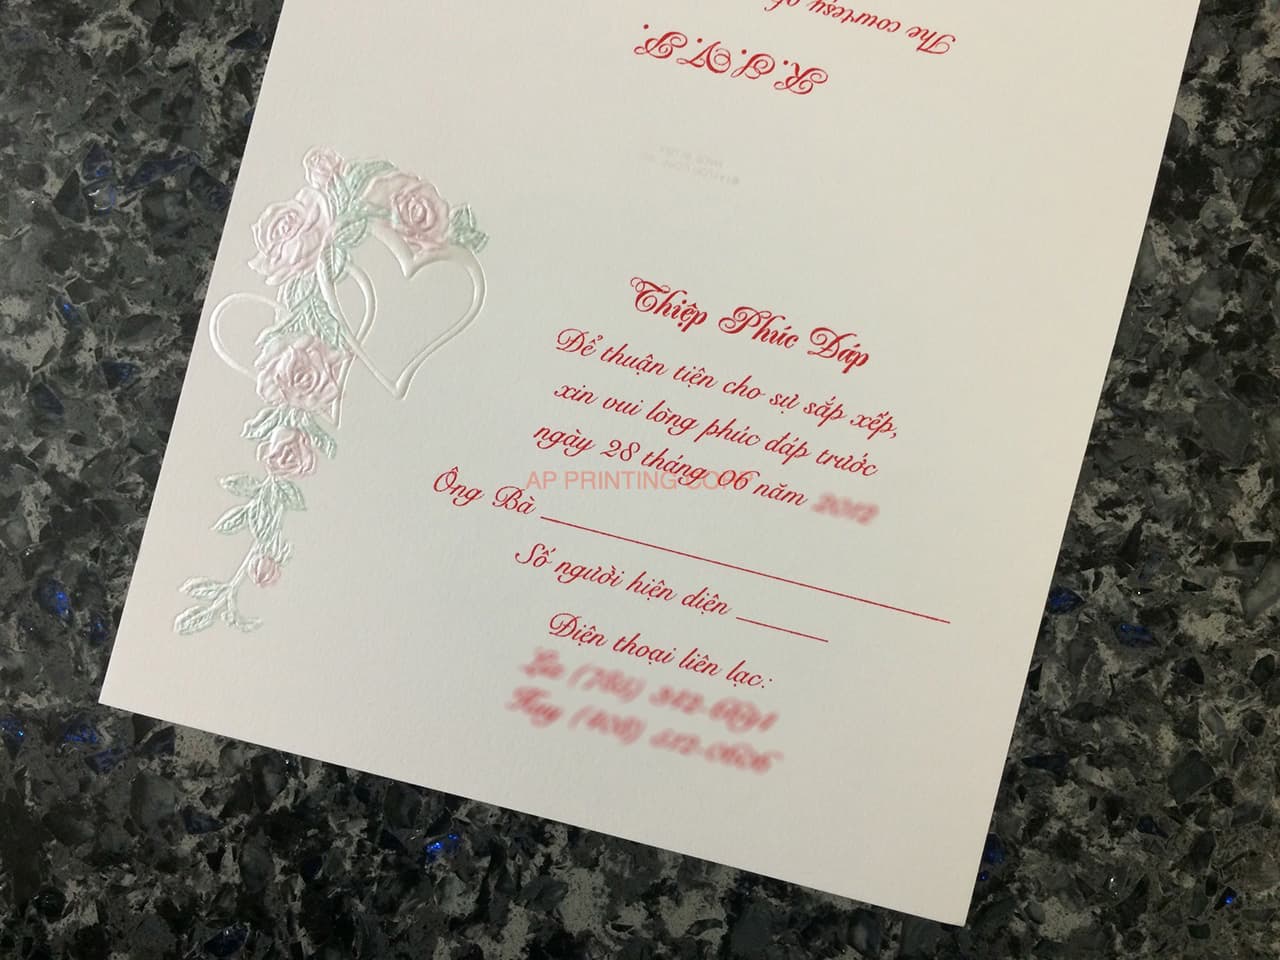 The courtesy of
R.S.V.P.
Thiệp Phúc Đáp
Để thuận tiện cho sự sắp xếp,
xin vui lòng phúc đáp trước
ngày 28 tháng 06 năm
AP PRINTING CORP
Ông Bà
Số người hiện diện
Điện thoại liên lạc: